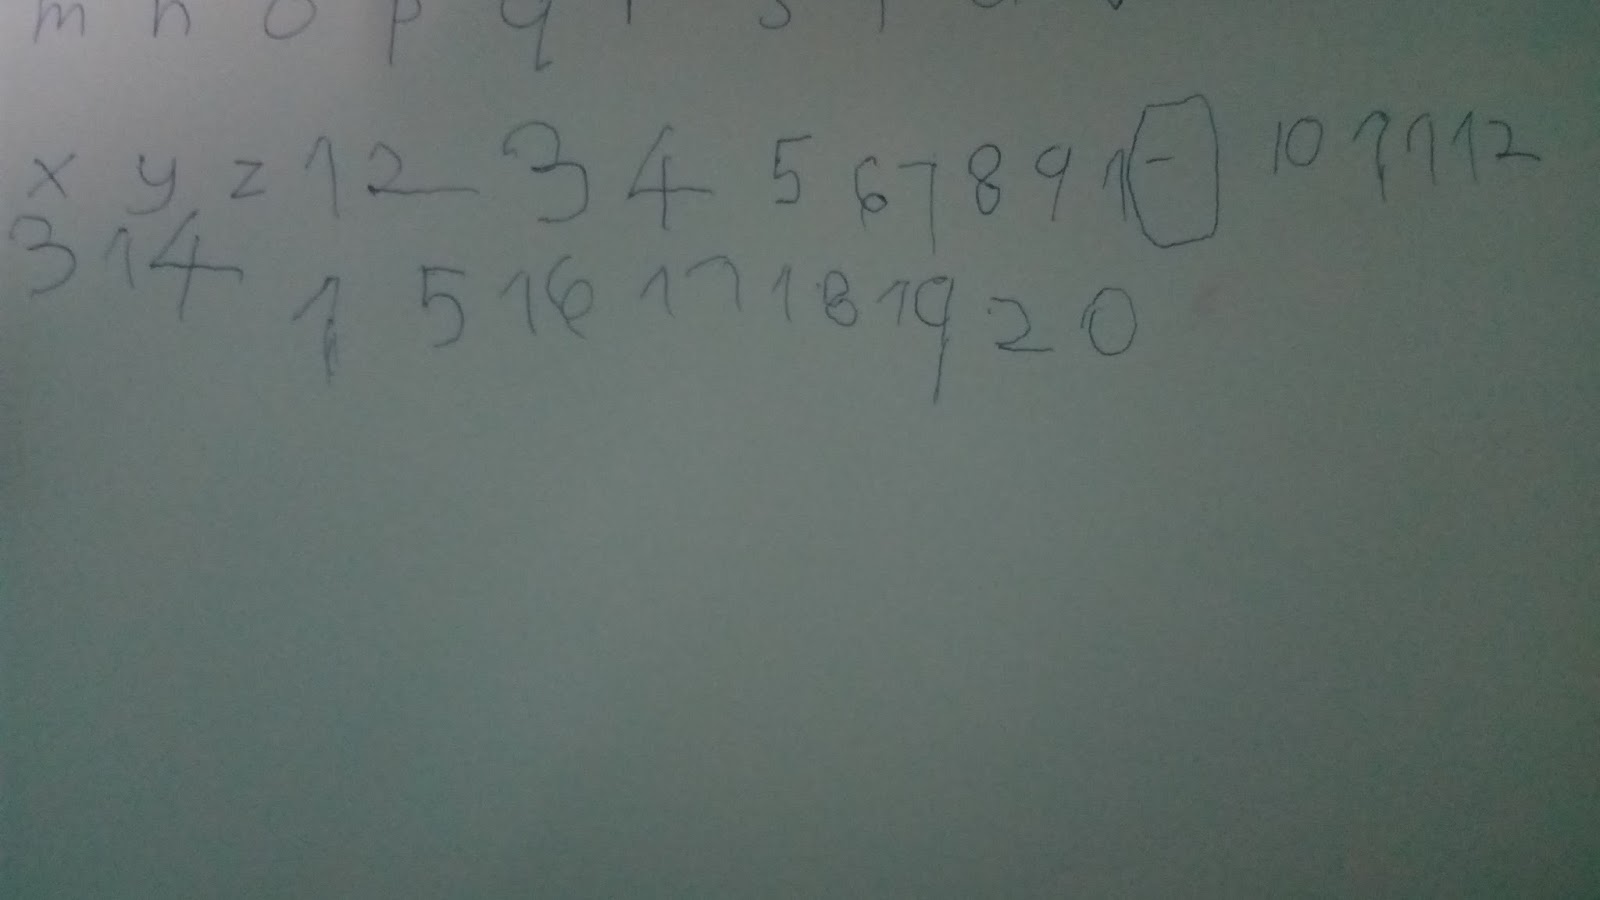 m n o p q r s t u v
x y z 1 2 3 4 5 6 7 8 9 1 - 10 11 12
3 14 1 5 16 17 18 19 2 0